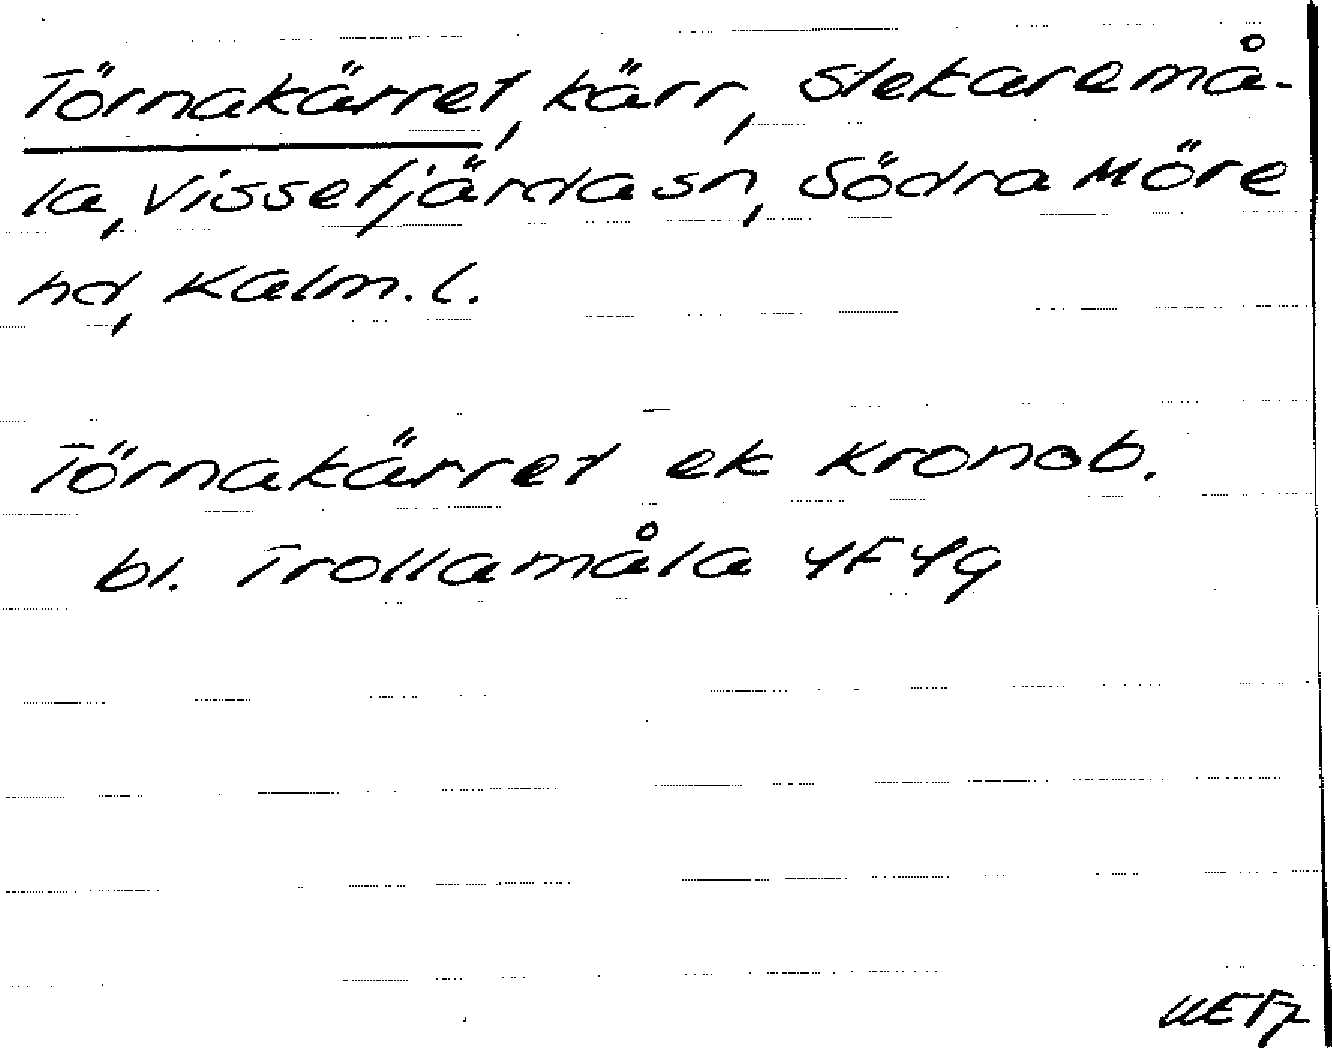 Törnakärret, kärr, Stekaremå-
la, Vissefjärda sn, Södra Möre
hd, Kalm. l.
Törnakärret ek Kronob.
bl. Trollamåla 4F4g